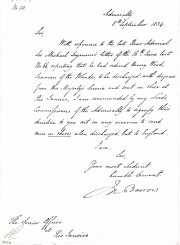 No 50
Admiralty
8th September 1834
Sir,
With reference to the late Rear Admiral
Sir Michael Seymour's letter of the 16th June last
No 66 reporting that he had ordered Henry Ward,
Seaman of the Blonde, to be discharged with disgrace
from His Majesty's Service and sent on shore at
Rio Janeiro, I am commanded by my Lords
Commissioners of the Admiralty to signify their
direction to you not on any account to send
men on shore when discharged but to England.
I am,
Sir,
Your most obedient
humble Servant
Jn Barrow
The Senior Officer
at
Rio Janeiro